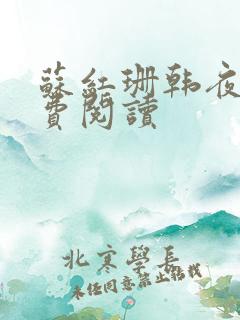 蘇紅珊韩夜
費閱讀
北寒學長
未经同意禁止转载